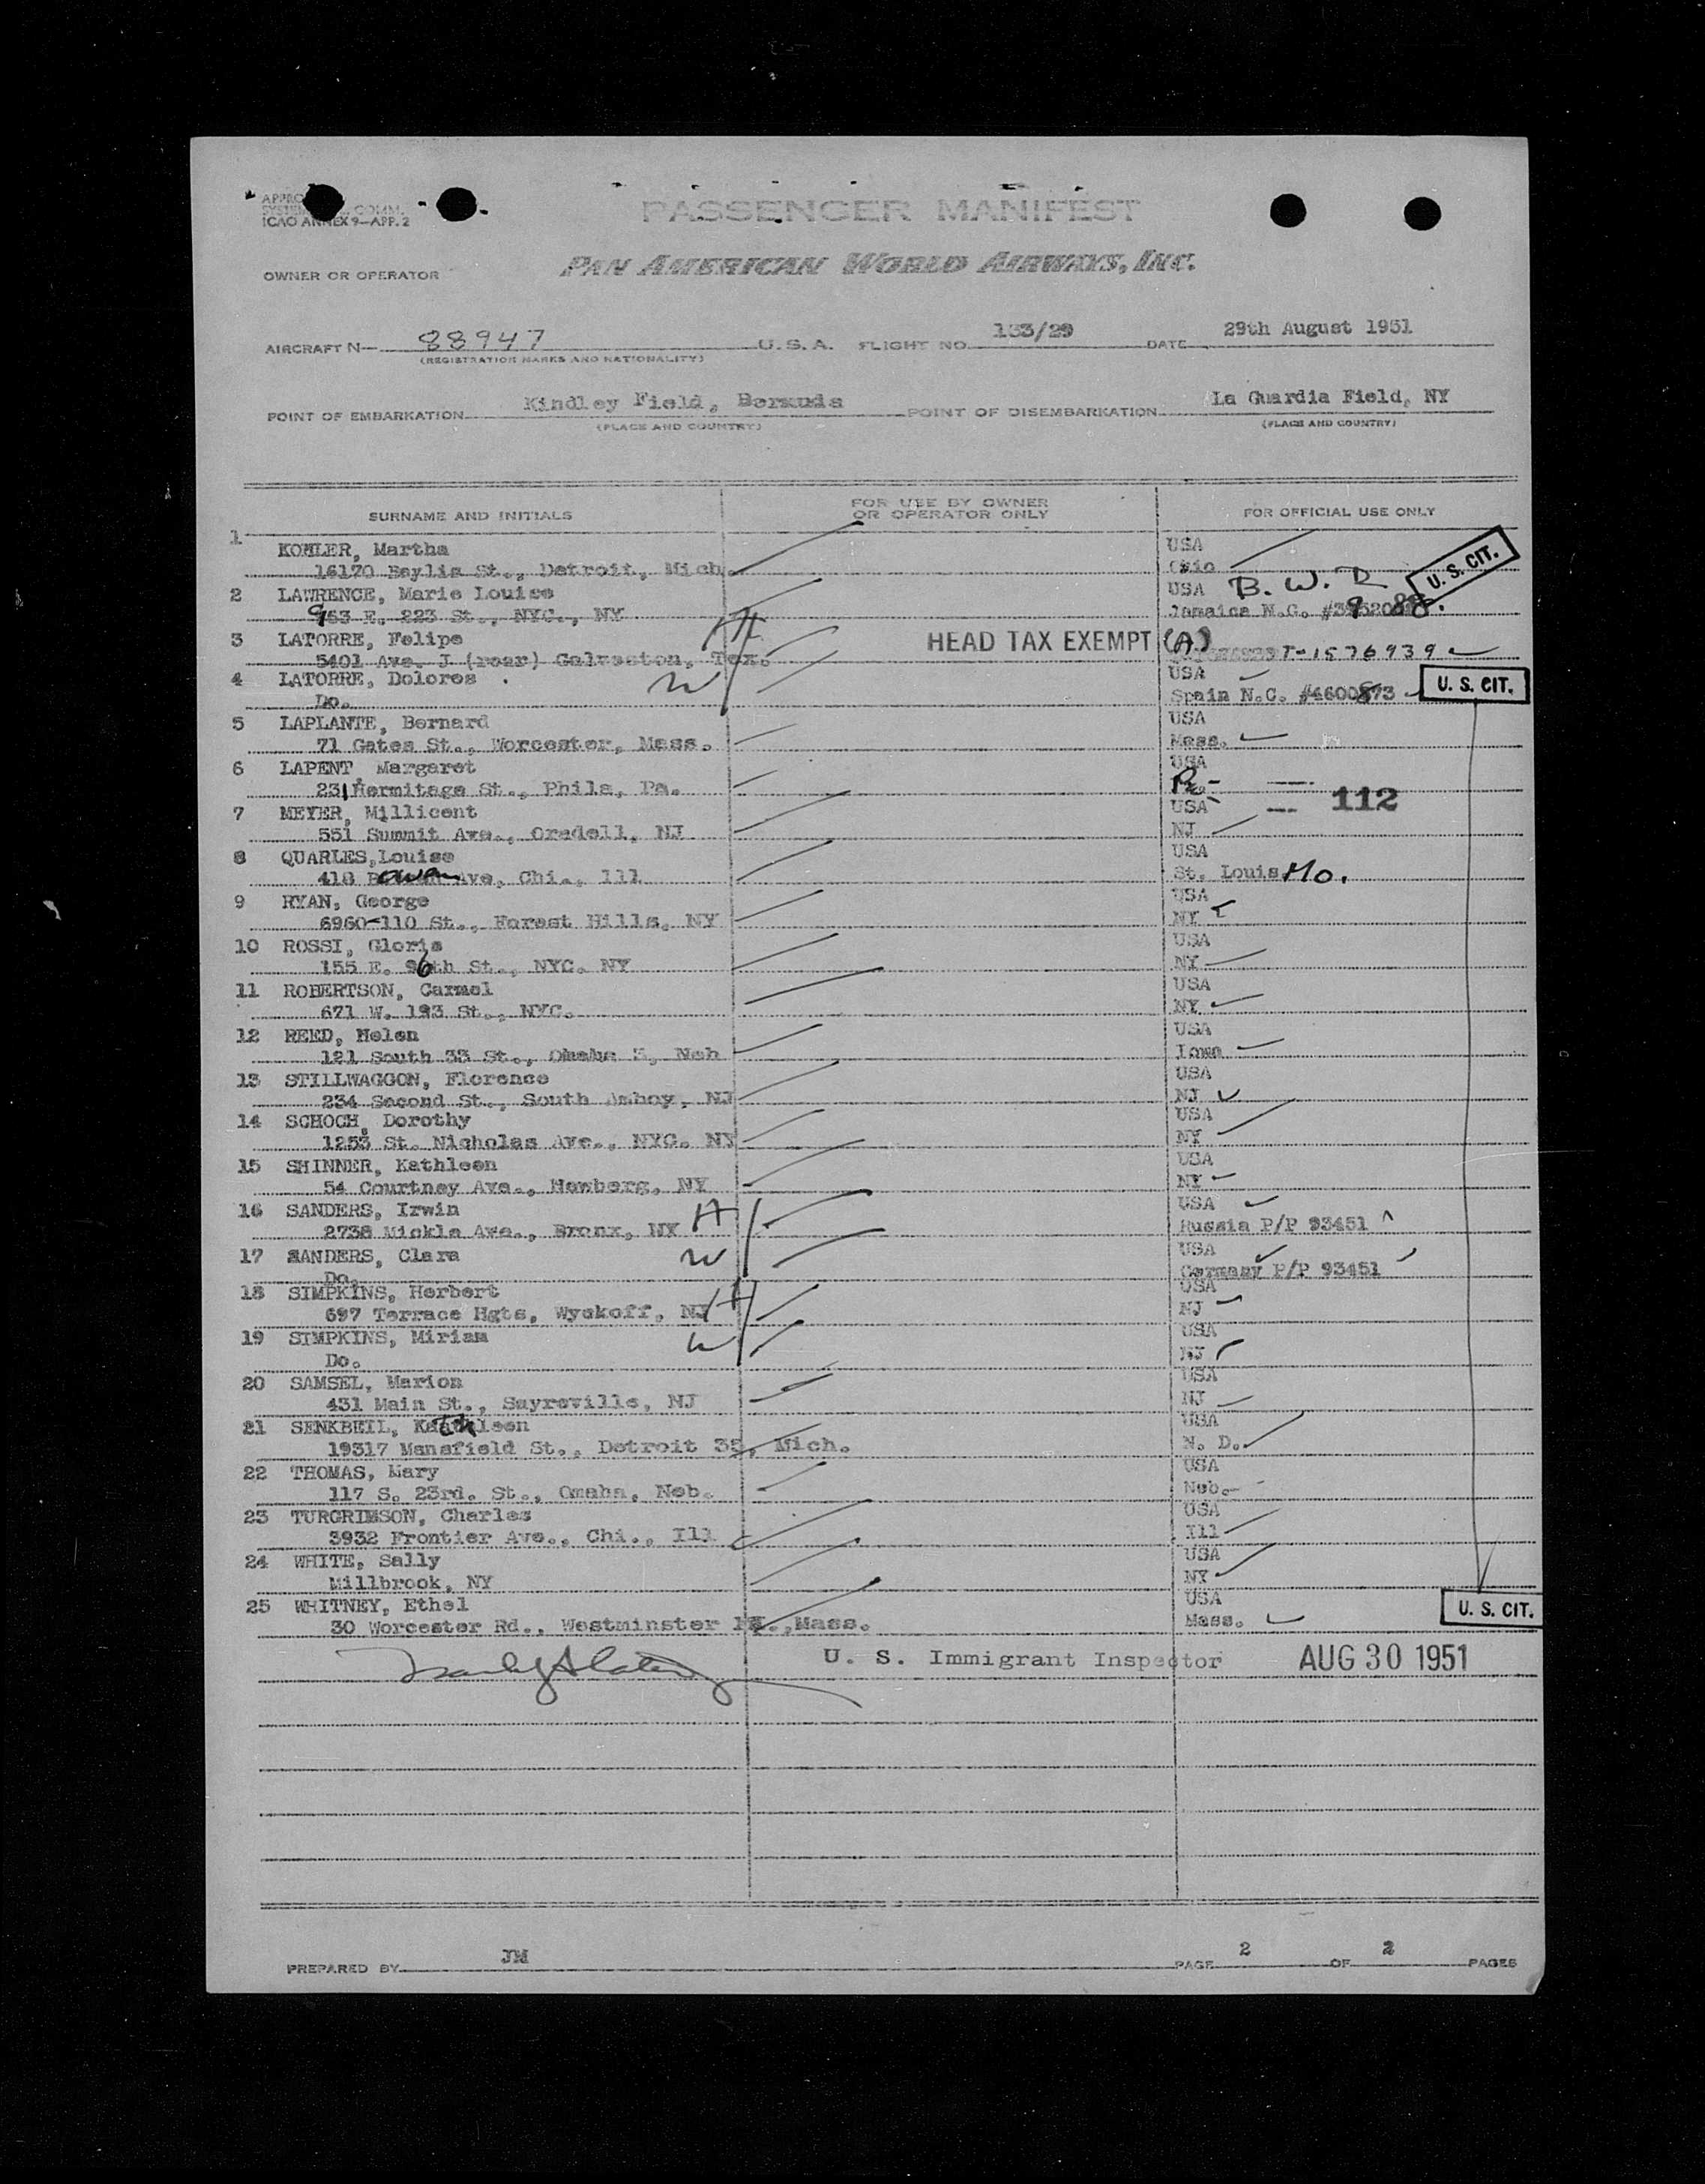 ICAO ANNEX 9—APP. 2
PASSENGER MANIFEST
OWNER OR OPERATOR
PAN AMERICAN WORLD AIRWAYS, INC.
AIRCRAFT N— 88947 U.S.A. FLIGHT NO. 133/29 DATE 29th August 1951
(REGISTRATION MARKS AND NATIONALITY)
POINT OF EMBARKATION Kindley Field, Bermuda POINT OF DISEMBARKATION La Guardia Field, NY
(PLACE AND COUNTRY) (PLACE AND COUNTRY)
SURNAME AND INITIALS FOR USE BY OWNER OR OPERATOR ONLY FOR OFFICIAL USE ONLY
1 KOHLER, Martha USA
16170 Baylis St., Detroit, Mich. Ohio
2 LAWRENCE, Marie Louise USA B.W.I. U. S. CIT.
953 E. 223 St., NYC., NY Jamaica N.C.
3 LATORRE, Felipe H HEAD TAX EXEMPT (A)
5401 Ave. J (rear) Galveston, Tex. T-1576939
4 LATORRE, Dolores W USA
Do. Spain N.C. #4600873 U. S. CIT.
5 LAPLANTE, Bernard USA
71 Gates St., Worcester, Mass. Mass.
6 LAPENT, Margaret USA
231 Hermitage St., Phila, Pa. Pa.
7 MEYER, Millicent USA 112
551 Summit Ave., Oradell, NJ NJ
8 QUARLES, Louise USA
418 Bowen Ave, Chi., Ill St. Louis Mo.
9 RYAN, George USA
6960-110 St., Forest Hills, NY NY
10 ROSSI, Gloria USA
155 E. 96th St., NYC. NY NY
11 ROBERTSON, Carmel USA
671 W. 193 St., NYC. NY
12 REED, Helen USA
121 South 33 St., Omaha 3, Neb Iowa
13 STILLWAGGON, Florence USA
234 Second St., South Amboy, NJ NJ
14 SCHOCH, Dorothy USA
1253 St. Nicholas Ave., NYC. NY NY
15 SHINNER, Kathleen USA
54 Courtney Ave., Newberg, NY NY
16 SANDERS, Irwin H USA
2738 Mickle Ave., Bronx, NY Russia P/P 93451
17 SANDERS, Clara W USA
Do. Germany P/P 93451
18 SIMPKINS, Herbert H USA
697 Terrace Hgts, Wyckoff, NJ NJ
19 SIMPKINS, Miriam W USA
Do. NJ
20 SAMSEL, Marion USA
431 Main St., Sayreville, NJ NJ
21 SENKBEIL, Kathleen USA
19317 Mansfield St., Detroit 35, Mich. N. D.
22 THOMAS, Mary USA
117 S. 23rd. St., Omaha, Neb. Neb.
23 TURGRIMSON, Charles USA
3932 Frontier Ave., Chi., Ill Ill
24 WHITE, Sally USA
Millbrook, NY NY
25 WHITNEY, Ethel USA U. S. CIT.
30 Worcester Rd., Westminster, Mass. Mass.
U. S. Immigrant Inspector AUG 30 1951
PREPARED BY JM PAGE 2 OF 2 PAGES